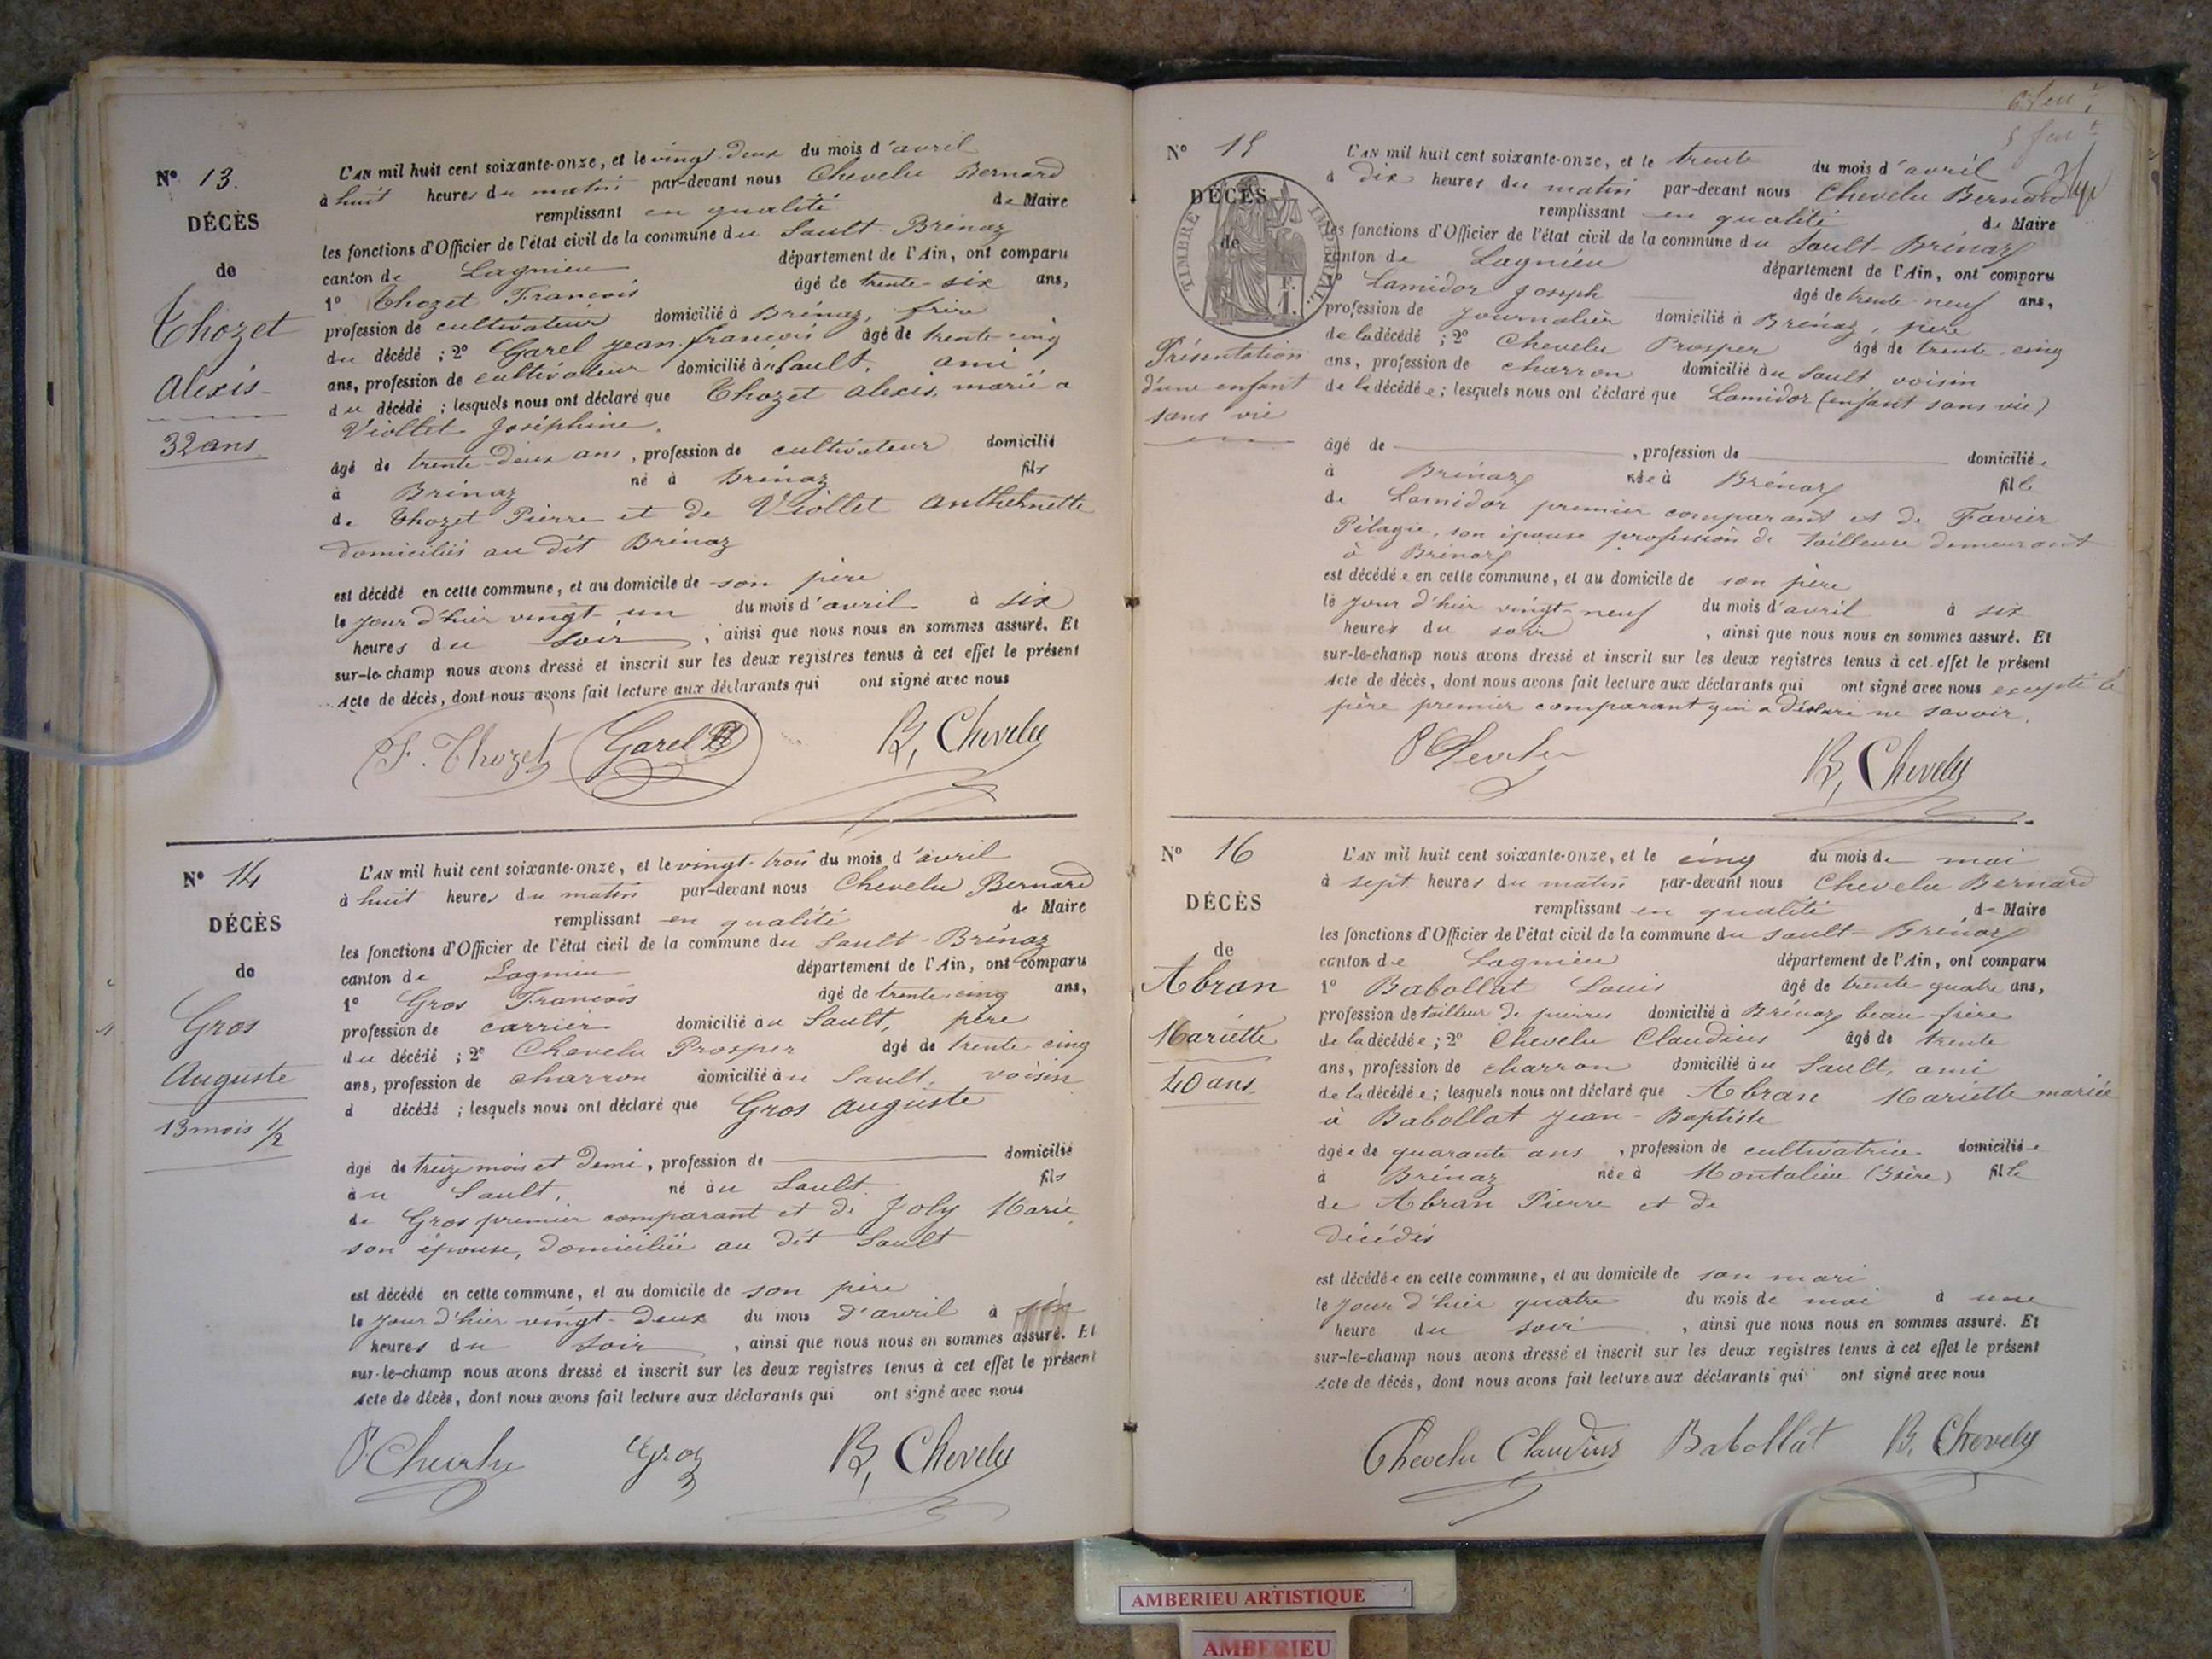 N° 13.
DÉCÈS
de
Thozet
Alexis
32 ans
L'AN mil huit cent soixante-onze, et le vingt-deux du mois d'avril
à huit heures du matin par-devant nous Chevelu Bernard
remplissant en qualité de Maire
les fonctions d'Officier de l'état civil de la commune du Sault-Brénaz
canton de Lagnieu département de l'Ain, ont comparu
1° Thozet François âgé de trente-six ans,
profession de cultivateur domicilié à Brénaz, frère
du décédé ; 2° Garel Jean-françois âgé de trente cinq
ans, profession de cultivateur domicilié au Sault, ami
du décédé ; lesquels nous ont déclaré que Thozet Alexis, marié a
Viollet Joséphine,
âgé de trente-deux ans, profession de cultivateur domicilié
à Brénaz né à Brénaz fils
de Thozet Pierre et de Viollet Anthelmette
domiciliés au dit Brénaz
est décédé en cette commune, et au domicile de son père
le jour d'hier vingt-un du mois d'avril à six
heures du soir, ainsi que nous nous en sommes assuré. Et
sur-le-champ nous avons dressé et inscrit sur les deux registres tenus à cet effet le présent
Acte de décès, dont nous avons fait lecture aux déclarants qui ont signé avec nous
F. Thozet Garel B, Chevelu
N° 14
DÉCÈS
de
Gros
Auguste
13 mois 1/2
L'AN mil huit cent soixante-onze, et le vingt-trois du mois d'avril
à huit heures du matin par-devant nous Chevelu Bernard
remplissant en qualité de Maire
les fonctions d'Officier de l'état civil de la commune du Sault-Brénaz
canton de Lagnieu département de l'Ain, ont comparu
1° Gros François âgé de trente-cinq ans,
profession de carrier domicilié au Sault, père
du décédé ; 2° Chevelu Prosper âgé de trente-cinq
ans, profession de charron domicilié au Sault, voisin
d décédé ; lesquels nous ont déclaré que Gros Auguste
âgé de treize mois et demi, profession de domicilié
au Sault, né au Sault fils
de Gros premier comparant et de Joly Marie,
son épouse, domiciliée au dit Sault
est décédé en cette commune, et au domicile de son père
le jour d'hier vingt-deux du mois d'avril à six
heures du soir, ainsi que nous nous en sommes assuré. Et
sur-le-champ nous avons dressé et inscrit sur les deux registres tenus à cet effet le présent
Acte de décès, dont nous avons fait lecture aux déclarants qui ont signé avec nous
P. Chevelu Gros B, Chevelu
N° 15
DÉCÈS
de
TIMBRE IMPÉRIAL
Présentation
d'une enfant
sans vie
L'AN mil huit cent soixante-onze, et le trente du mois d'avril
à dix heures du matin par-devant nous Chevelu Bernard
remplissant en qualité de Maire
les fonctions d'Officier de l'état civil de la commune du Sault-Brénaz
canton de Lagnieu département de l'Ain, ont comparu
1° Lamidor Joseph âgé de trente-neuf ans,
profession de journalier domicilié à Brénaz, père
de la décédé ; 2° Chevelu Prosper âgé de trente-cinq
ans, profession de charron domicilié au Sault voisin
de la décédée ; lesquels nous ont déclaré que Lamidor (enfant sans vie)
âgé de , profession de domiciliée
à Brénaz née à Brénaz fille
de Lamidor premier comparant et de Favier
Pélagie, son épouse profession de tailleuse demeurant
à Brénaz
est décédée en cette commune, et au domicile de son père
le jour d'hier vingt-neuf du mois d'avril à six
heures du soir, ainsi que nous nous en sommes assuré. Et
sur-le-champ nous avons dressé et inscrit sur les deux registres tenus à cet effet le présent
Acte de décès, dont nous avons fait lecture aux déclarants qui ont signé avec nous excepté le
père premier comparant qui a déclaré ne savoir.
P Chevelu B, Chevelu
N° 16
DÉCÈS
de
Abran
Mariette
40 ans
L'AN mil huit cent soixante-onze, et le cinq du mois de mai
à sept heures du matin par-devant nous Chevelu Bernard
remplissant en qualité de Maire
les fonctions d'Officier de l'état civil de la commune du Sault-Brénaz
canton de Lagnieu département de l'Ain, ont comparu
1° Babollat Louis âgé de trente-quatre ans,
profession de tailleur de pierres domicilié à Brénaz beau-frère
de la décédée ; 2° Chevelu Claudius âgé de trente
ans, profession de charron domicilié au Sault, ami
de la décédée ; lesquels nous ont déclaré que Abran Mariette mariée
à Babollat Jean-Baptiste
âgée de quarante ans, profession de cultivatrice domiciliée
à Brénaz née à Montalieu (Isère) fille
de Abran Pierre et de
décédés
est décédée en cette commune, et au domicile de son mari
le jour d'hier quatre du mois de mai à une
heure du soir, ainsi que nous nous en sommes assuré. Et
sur-le-champ nous avons dressé et inscrit sur les deux registres tenus à cet effet le présent
Acte de décès, dont nous avons fait lecture aux déclarants qui ont signé avec nous
Chevelu Claudius Babollat B. Chevelu
AMBERIEU ARTISTIQUE
AMBERIEU